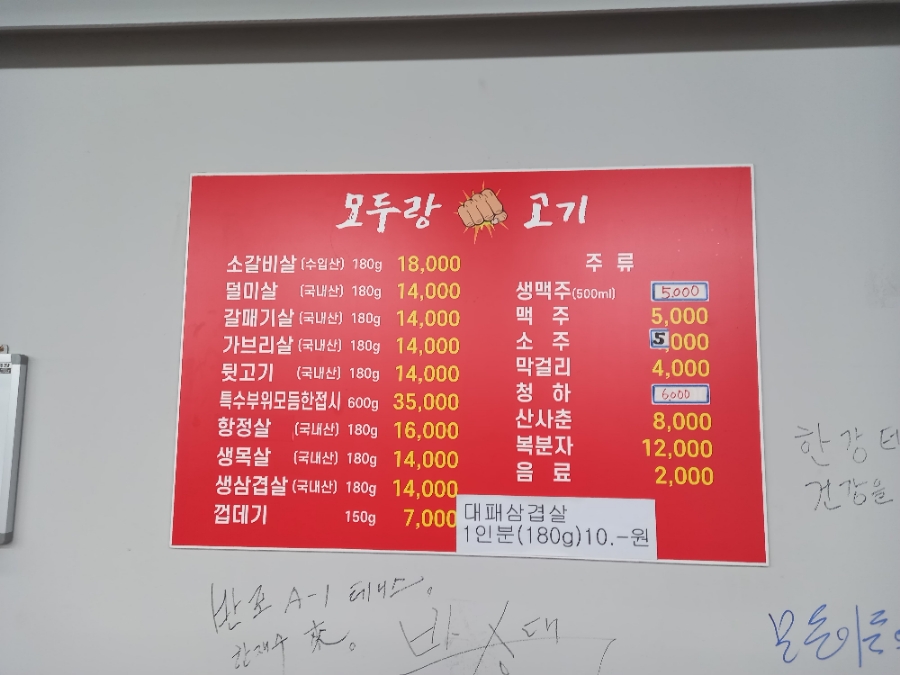 모두랑 고기
소갈비살 (수입산) 180g 18,000
덜미살 (국내산) 180g 14,000
갈매기살 (국내산) 180g 14,000
가브리살 (국내산) 180g 14,000
뒷고기 (국내산) 180g 14,000
특수부위모듬한접시 600g 35,000
항정살 (국내산) 180g 16,000
생목살 (국내산) 180g 14,000
생삼겹살 (국내산) 180g 14,000
껍데기 150g 7,000
주 류
생맥주(500ml) 5,000
맥 주 5,000
소 주 5,000
막걸리 4,000
청 하 6000
산사춘 8,000
복분자 12,000
음 료 2,000
대패삼겹살
1인분(180g)10.-원
한강테
건강을
반포 A-1 테니스.